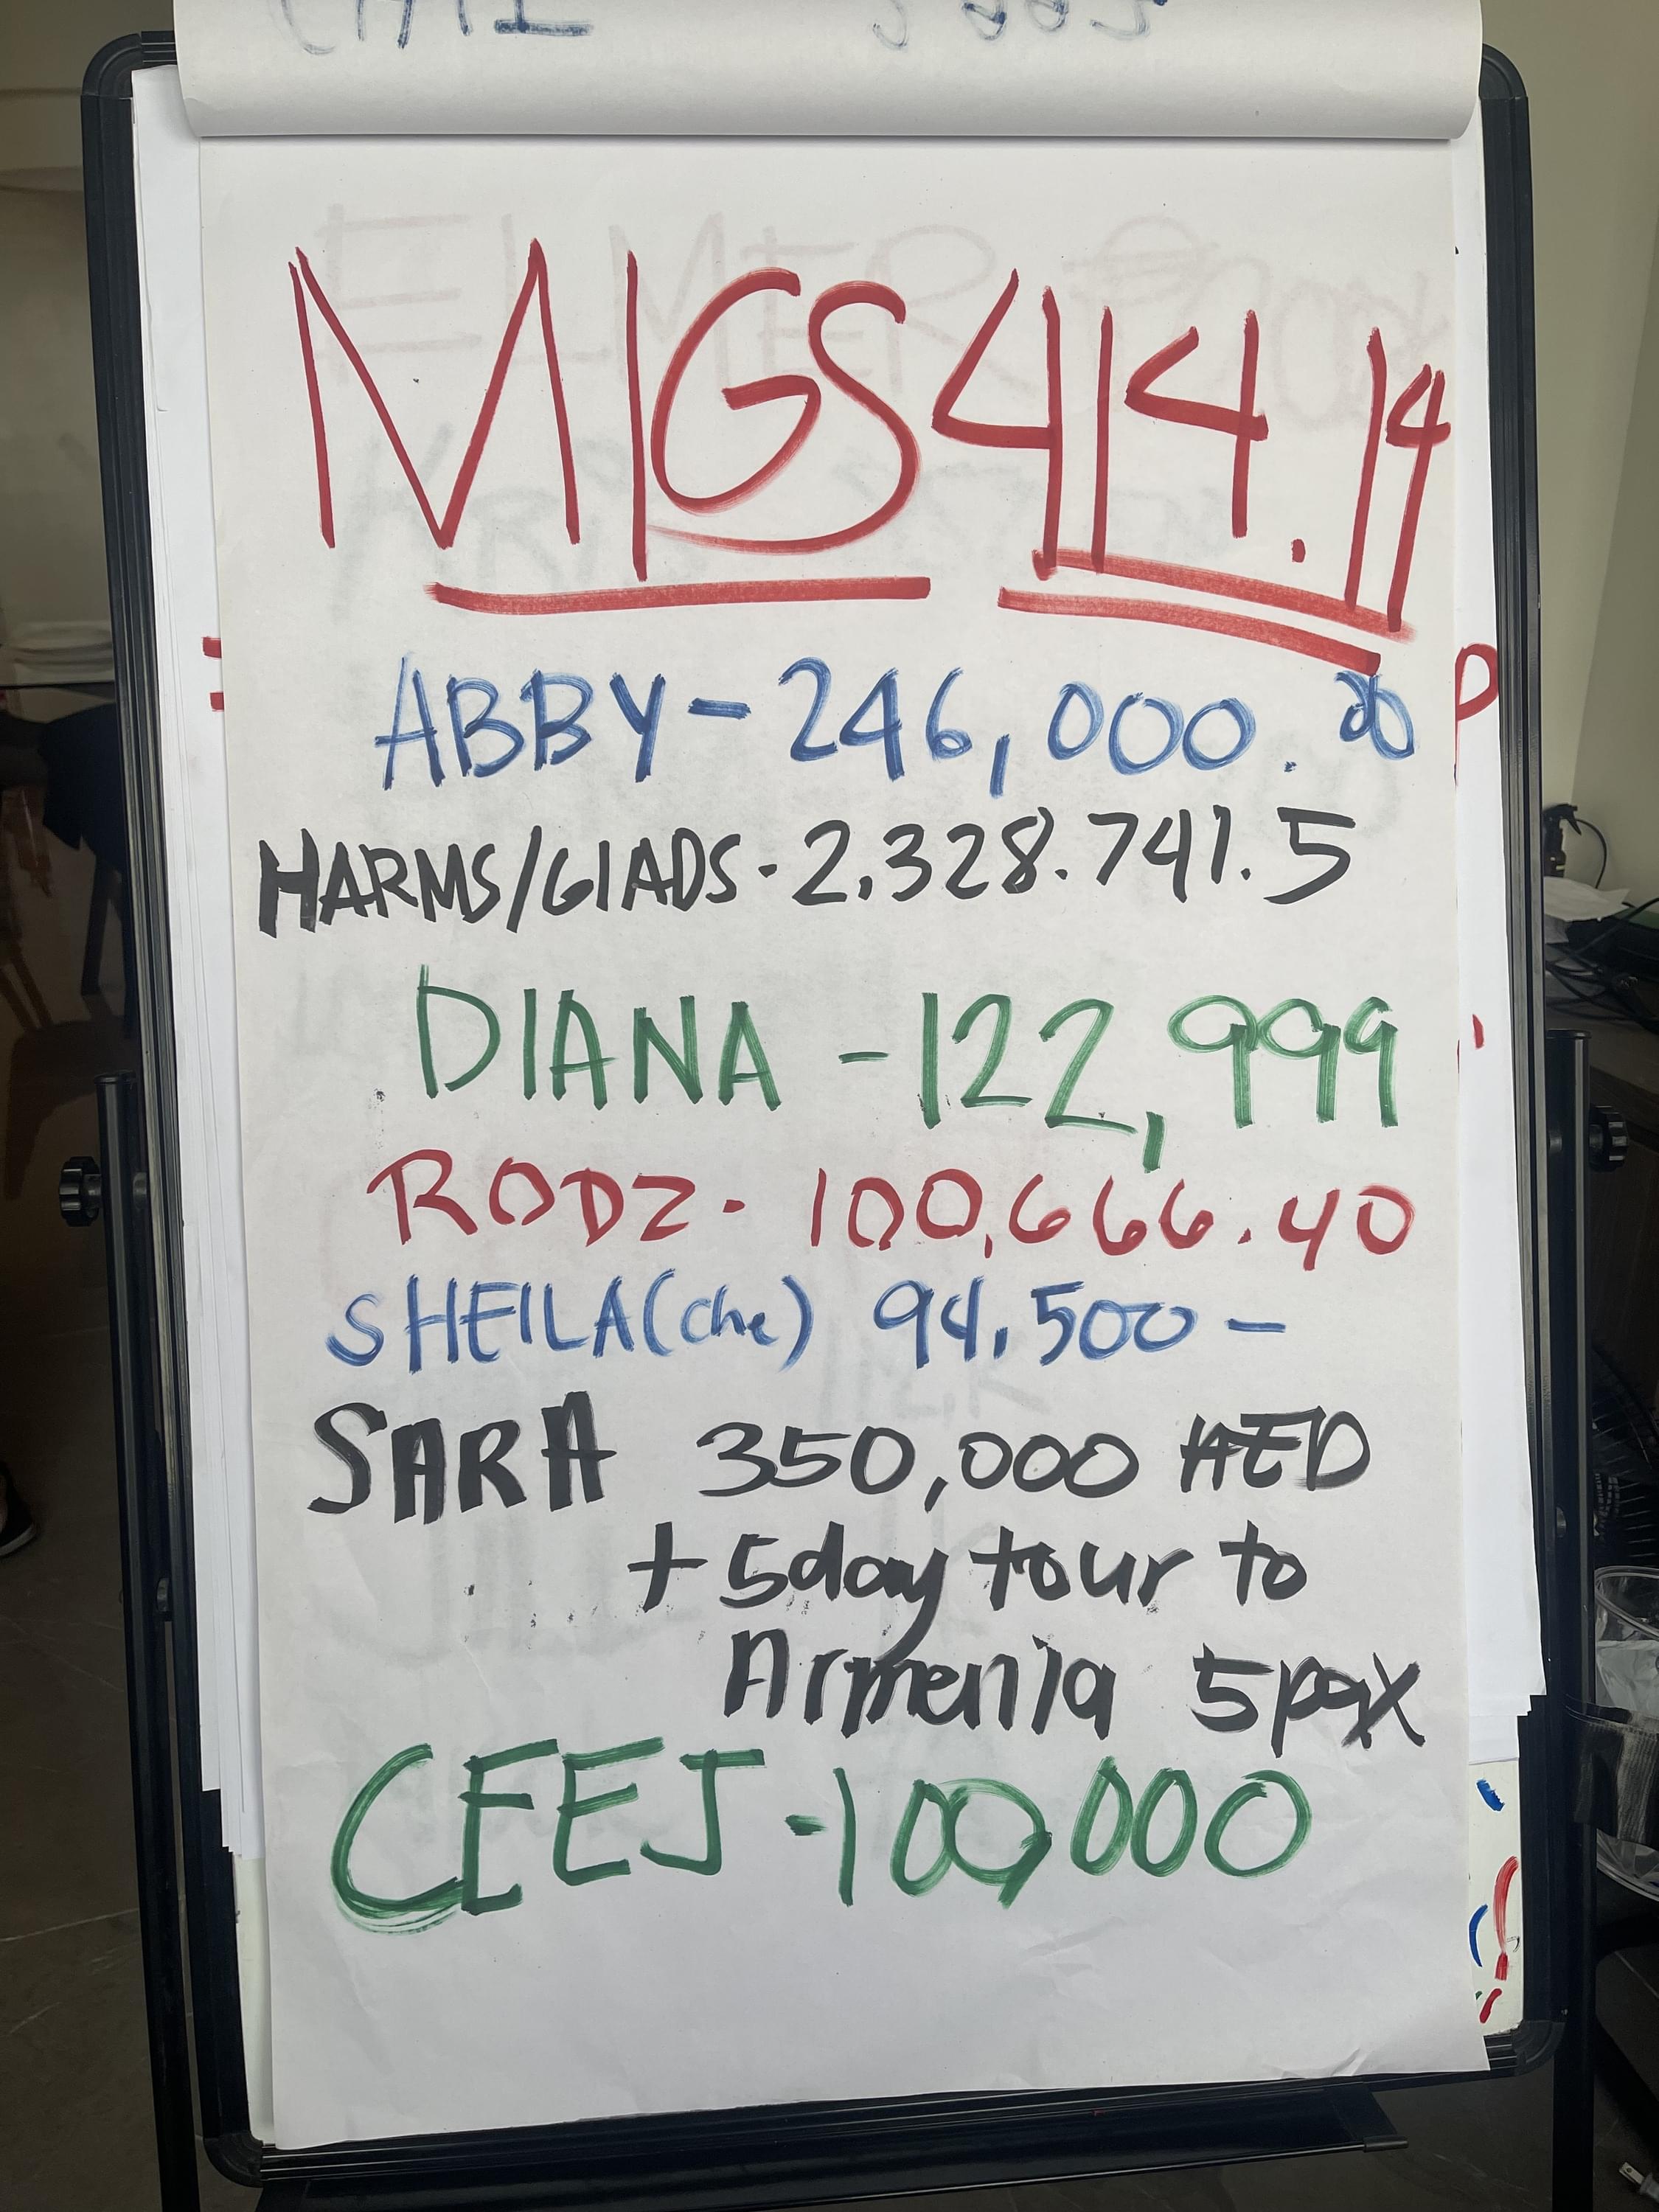 MIGS 414.14
ABBY - 246,000.00
HARMS/GIADS - 2.328.741.5
DIANA - 122,999
RODZ - 100,666.40
SHEILA (che) 94.500 -
SARA 350,000 AED
+ 5day tour to
Armenia 5pax
CEEJ - 100,000